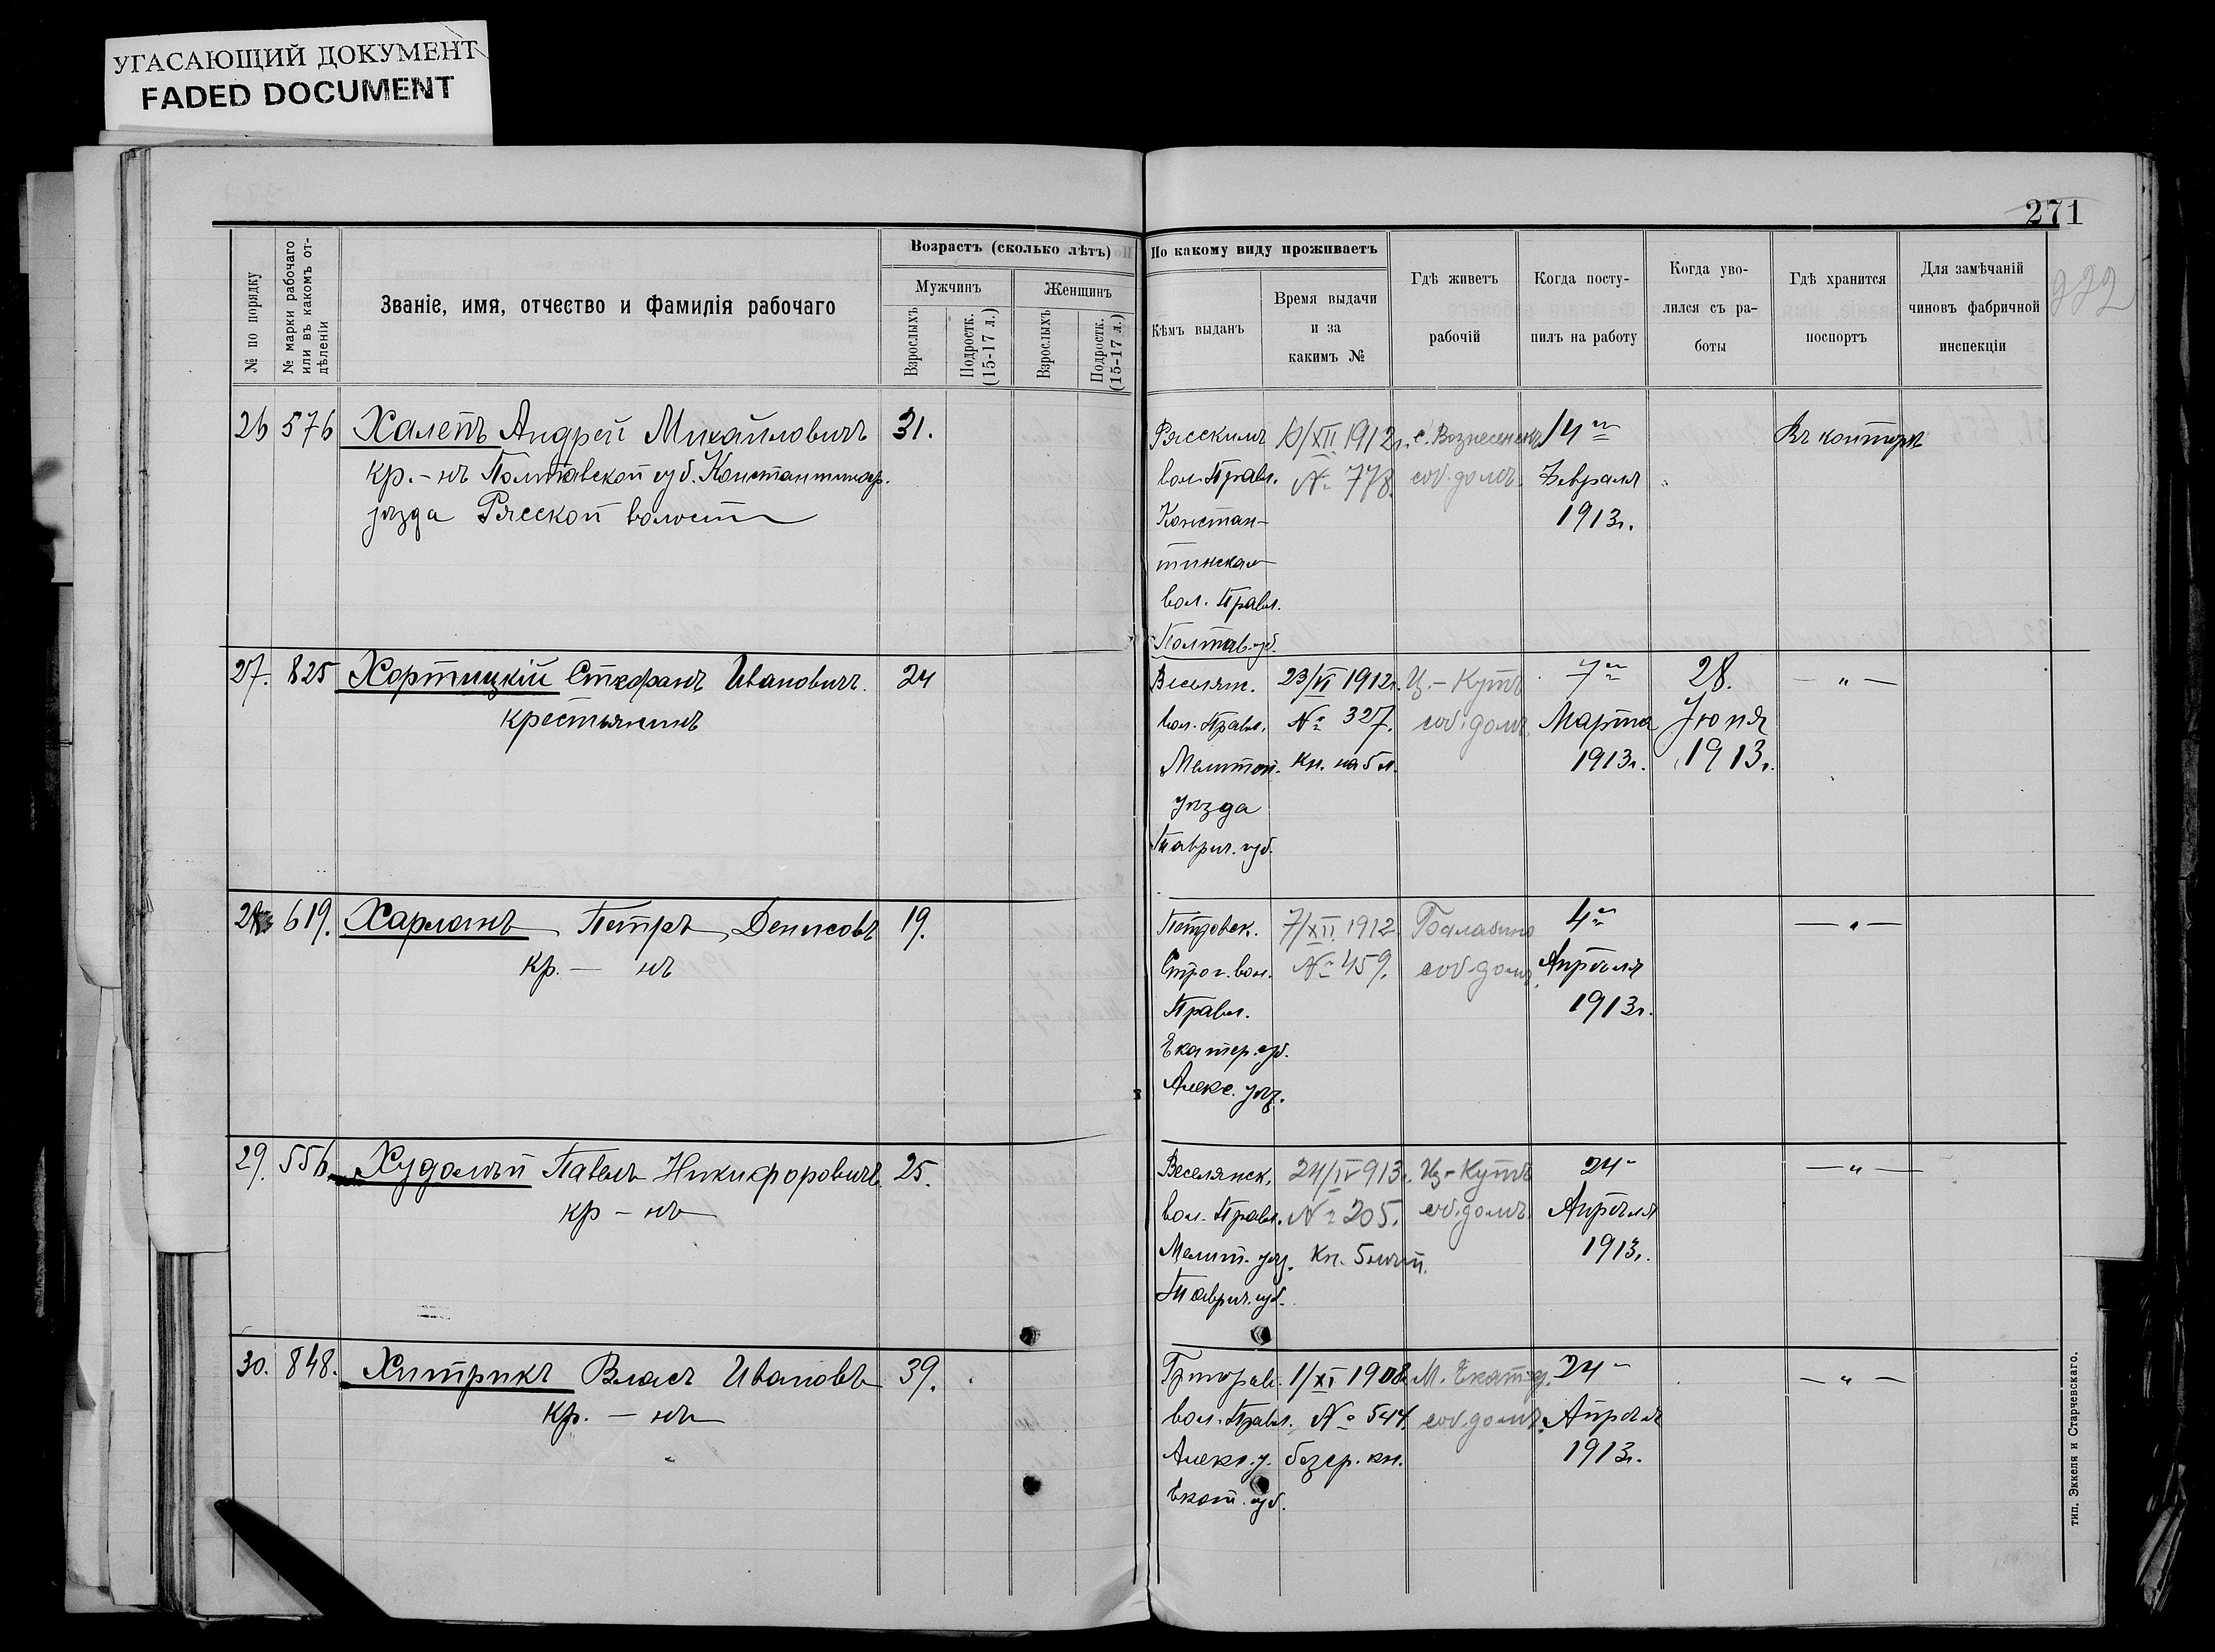 УГАСАЮЩИЙ ДОКУМЕНТ
FADED DOCUMENT
271
№ по порядку
№ марки рабочаго
или въ какомъ от-
дѣленіи
Званіе, имя, отчество и фамилія рабочаго
Возрастъ (сколько лѣтъ)
Мужчинъ
Женщинъ
Взрослыхъ
Подростк.
(15-17 л.)
Взрослыхъ
Подростк.
(15-17 л.)
По какому виду проживаетъ
Кѣмъ выданъ
Время выдачи
и за
какимъ №
Гдѣ живетъ
рабочій
Когда посту-
пилъ на работу
Когда уво-
лился съ ра-
боты
Гдѣ хранится
поспортъ
Для замѣчаній
чиновъ фабричной
инспекціи
26 576 Халепъ Андрей Михайловичъ 31.
кр.-нъ Полтавской губ. Константиногр.
уѣзда Рясской волости
Рясскимъ
вол. Правл.
Констан-
тинская
вол. Правл.
Полтав. губ.
10/XII 1912г.
№ 778.
с. Вознесенск.
соб. домъ.
14го
Февраля
1913г.
Въ конторѣ
27. 825 Хортицкій Стефанъ Ивановичъ. 24
крестьянинъ
Веселян.
вол. Правл.
Мелитоп.
уѣзда
Таврич. губ.
23/VI 1912г.
№ 327.
Кн. на 5 л.
Ц.-Кутъ
соб. домъ
7го
Марта
1913г.
28.
Іюня
1913г.
— „ —
28 619. Харланъ Петръ Денисовъ 19.
кр. — нъ
Петровск.
Строг. вол.
Правл.
Екатер. губ.
Алекс. уѣз.
7/XII 1912
№ 459.
Балабино
соб. домъ.
4го
Апрѣля
1913г.
— „ —
29. 556 Худолѣй Павелъ Никифоровичъ. 25.
кр — нъ
Веселянск.
вол. Правл.
Мелит. уѣз.
Таврич. губ.
24/IV 913г.
№ 205.
Кн. 5 лѣт.
Ц-Кутъ
соб. домъ.
24-
Апрѣля
1913г.
— „ —
30. 848. Хитрикъ Власъ Ивановъ 39.
Кр. — нъ
Григорьев.
вол. Правл.
Алекс. у.
Екат. губ.
1/XI 1908
№ 544.
безср. кн.
М. Екат-д.
соб. домъ.
24-
Апрѣля
1913г.
— „ —
тип. Эккеля и Старчевскаго.